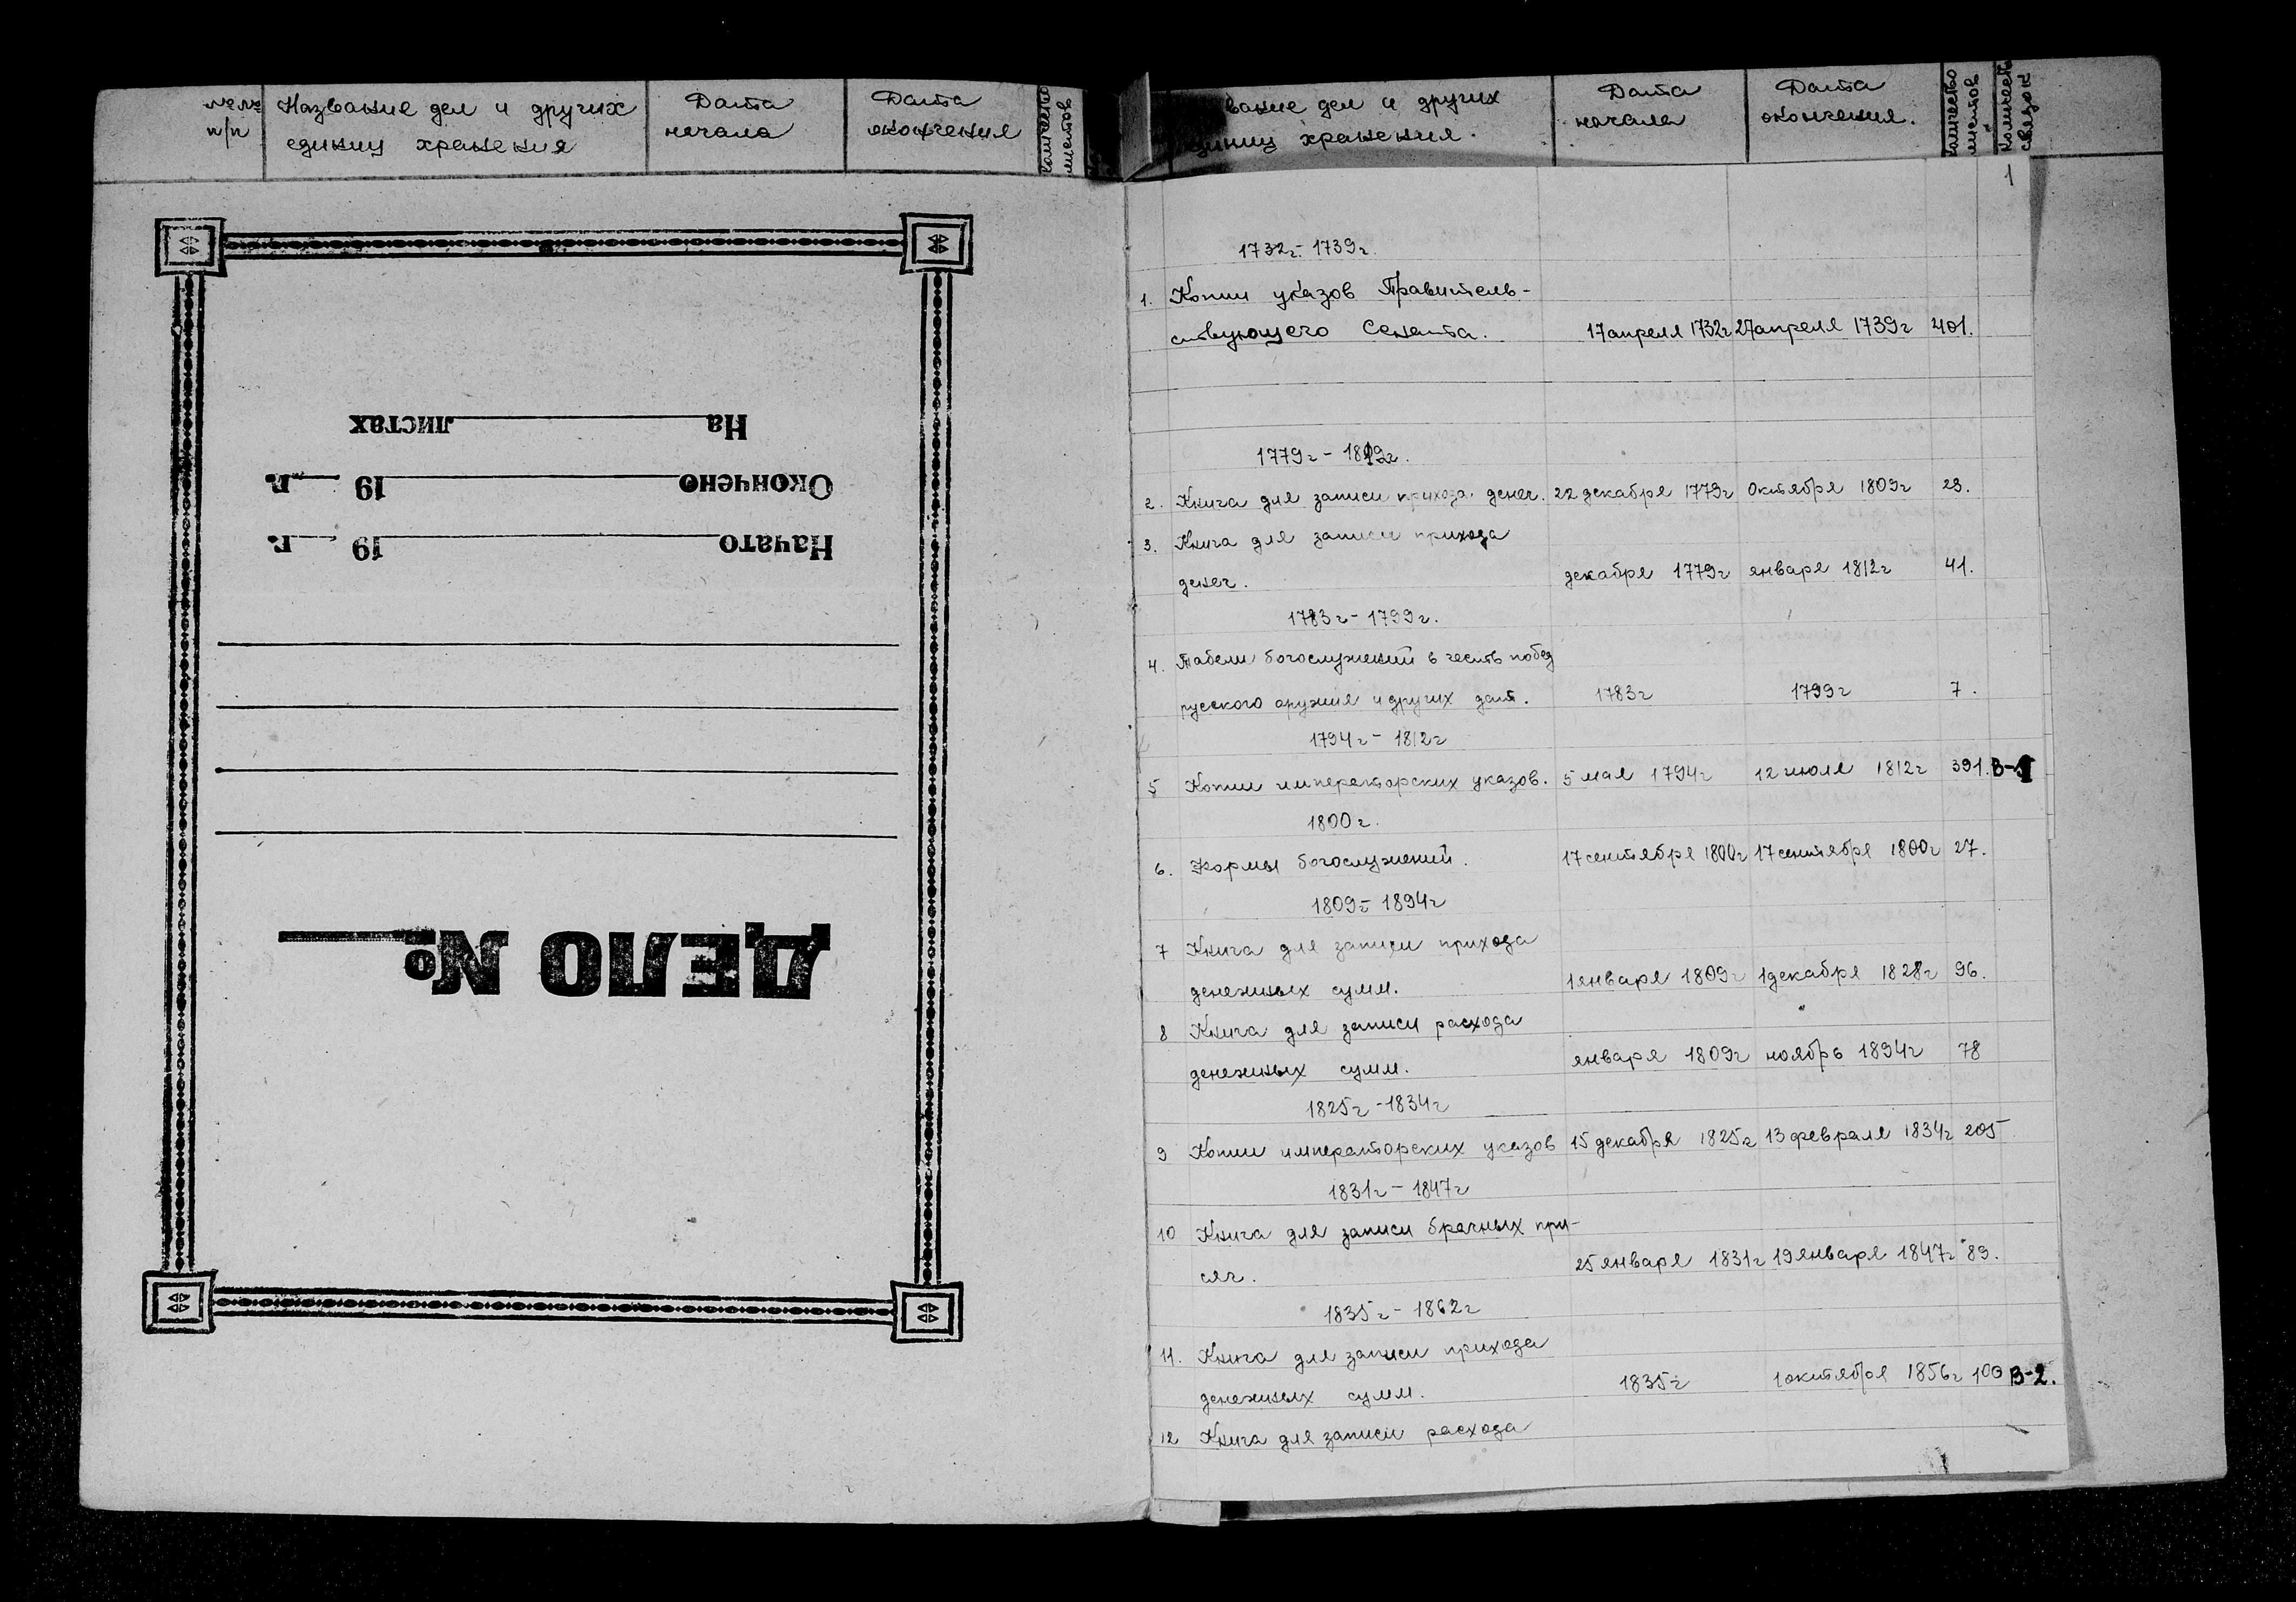 №№ п/п
Название дел и других
единиц хранения
Дата
начала
Дата
окончения
Количество
листов
На листах
Окончено 19 г.
Начато 19 г.
ДЕЛО №
вание дел и других
единиц хранения.
Дата
начала
Дата
окончения.
Количество
листов
Количество
связок
1
1732г.- 1739г.
1. Копии указов Правитель-
ствующего Сената. 17 апреля 1732г 27 апреля 1739г 401.
1779г - 1812г.
2. Книга для записи прихода денег. 22 декабря 1779г Октября 1809г 23.
3. Книга для записи прихода
денег. декабря 1779г января 1812г 41.
1783г - 1799г.
4. Табели богослужений в честь побед
русского оружия и других дат. 1783г 1799г 7.
1794г - 1812г
5 Копии императорских указов. 5 мая 1794г 12 июля 1812г 391. В-1
1800г.
6. Формы богослужений. 17 сентября 1800г 17 сентября 1800г 27.
1809г - 1894г
7 Книга для записи прихода
денежных сумм. 1 января 1809г 1 декабря 1828г 96.
8 Книга для записи расхода
денежных сумм. января 1809г ноябрь 1894г 78
1825г - 1834г
9 Копии императорских указов 15 декабря 1825г 13 февраля 1834г 205
1831г - 1847г
10 Книга для записи брачных при-
сяг. 25 января 1831г 19 января 1847г 89.
1835г - 1862г
11. Книга для записи прихода
денежных сумм. 1835г 1 октября 1856г 100 В-2.
12 Книга для записи расхода